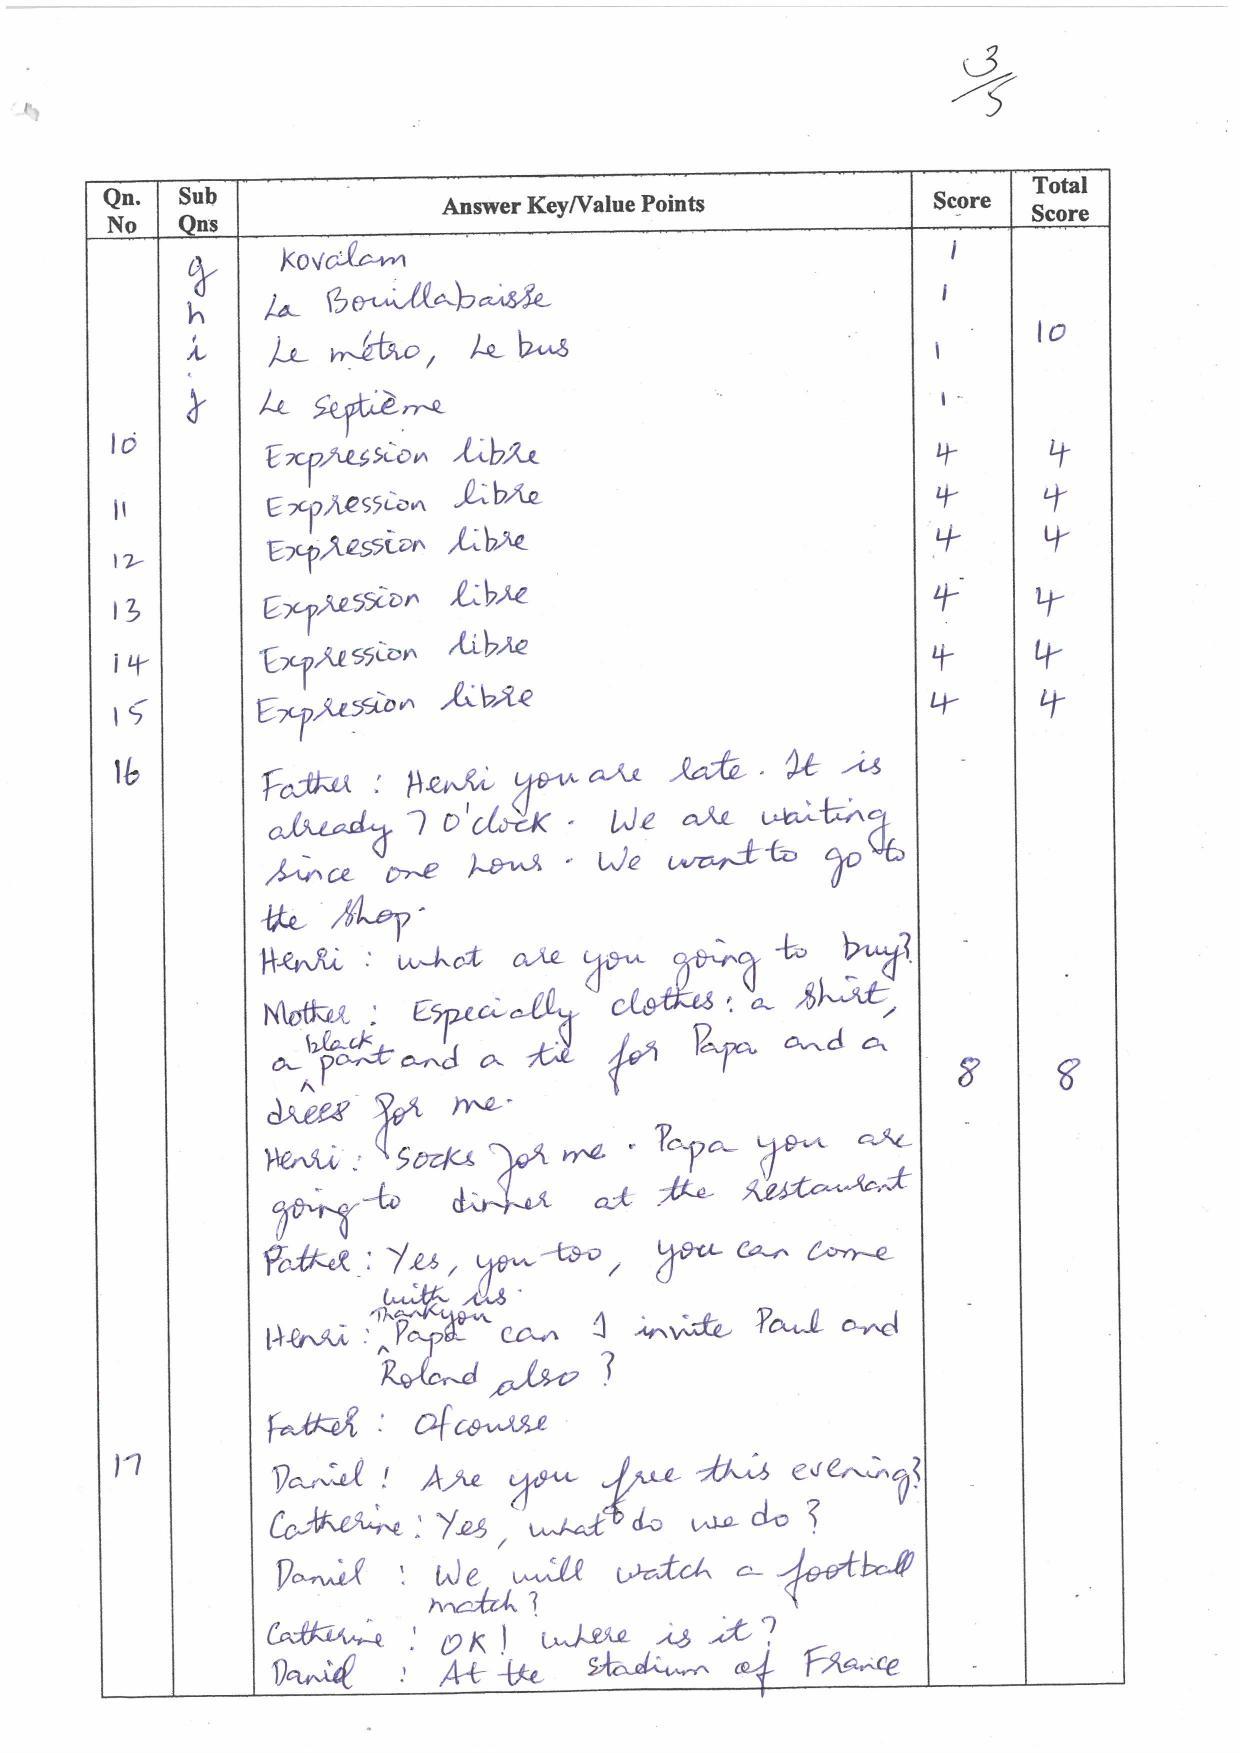 3/5
Qn. No Sub Qns Answer Key/Value Points Score Total Score
g Kovalam 1
h La Bouillabaisse 1
i Le métro, Le bus 1 10
j Le Septième 1
10 Expression libre 4 4
11 Expression libre 4 4
12 Expression libre 4 4
13 Expression libre 4 4
14 Expression libre 4 4
15 Expression libre 4 4
16 Father : Henri you are late. It is
already 7 O'clock. We are waiting
since one hour. We want to go to
the shop.
Henri : what are you going to buy?
Mother : Especially clothes : a shirt,
a black pant and a tie for Papa and a 8 8
dress for me.
Henri : Socks for me. Papa you are
going to dinner at the restaurant
Father : Yes, you too, you can come
with us.
Henri : Thankyou Papa can I invite Paul and
Roland also ?
Father : Of course
17 Daniel ! Are you free this evening?
Catherine : Yes, what do we do ?
Daniel : We will watch a football
match ?
Catherine : OK! where is it ?
Daniel : At the stadium of France